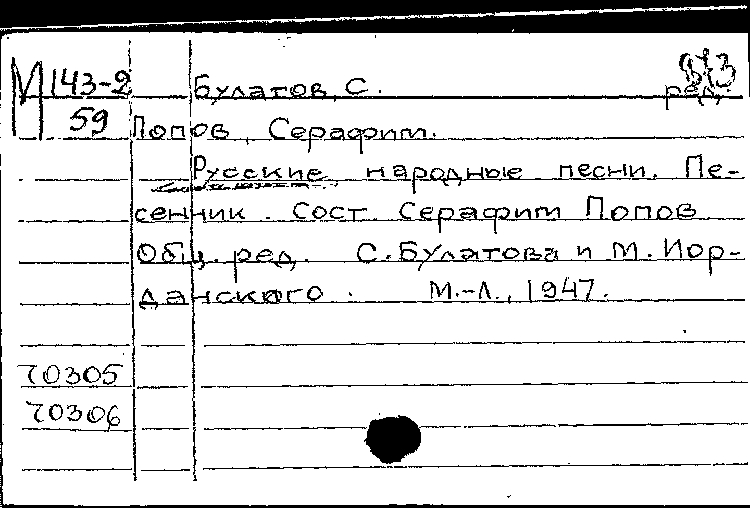 М 143-2 Булатов, С. ред.
59 Попов, Серафим.
Русские народные песни. Пе-
сенник. Сост. Серафим Попов
Общ. ред. С. Булатова и М. Иор-
данского. М.-Л., 1947.
70305
70306